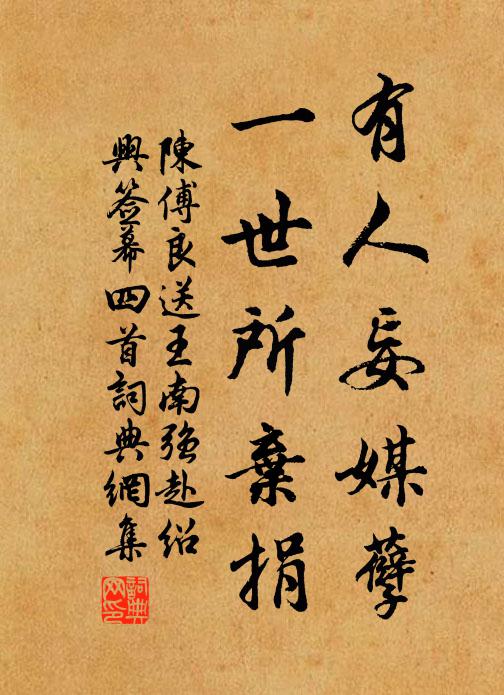 有人妄媒孽
一世所棄捐
陳傅良送王南强赴绍
興签幕四首詞典網集